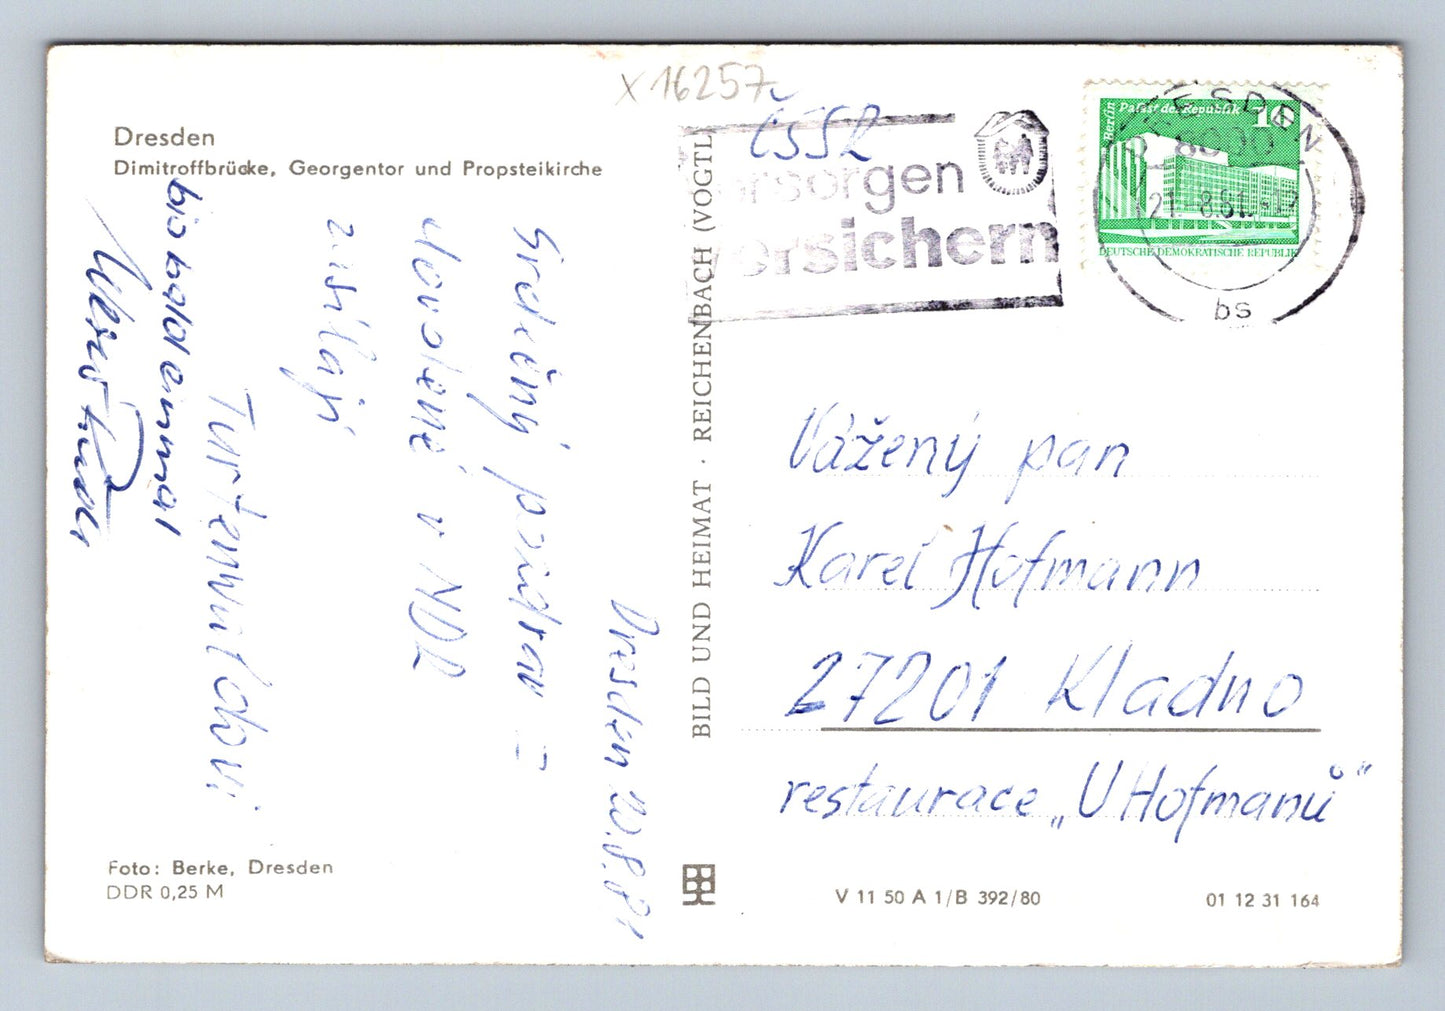 x 16257
Dresden
Dimitroffbrücke, Georgentor und Propsteikirche
Dresden 20.8.81
Srdečný pozdrav z
dovolené v NDR
zasílají
bis bald einmal
Foto: Berke, Dresden
DDR 0,25 M
BILD UND HEIMAT · REICHENBACH (VOGTL
ČSSR
versichern
Berlin Palast der Republik 10
DEUTSCHE DEMOKRATISCHE REPUBLIK
DRESDEN
8060
21.-8.81.-12
bs
Vážený pan
Karel Hofmann
27201 Kladno
restaurace „U Hofmanů“
V 11 50 A 1/B 392/80
01 12 31 164